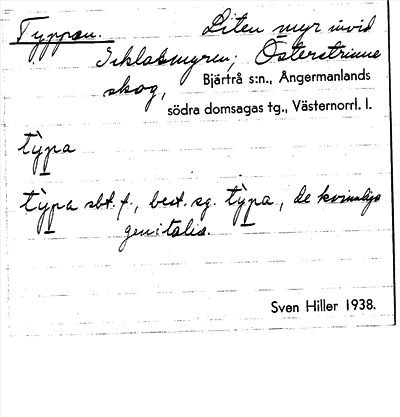 Typpan. Liten myr invid
Isklatsmyren, Österstrinne
skog, Bjärtrå s:n., Ångermanlands
södra domsagas tg., Västernorrl. l.
tỳpa
tỳpa sbt. f., best. sg. tỳpa, de kvinnliga
genitalia.
Sven Hiller 1938.